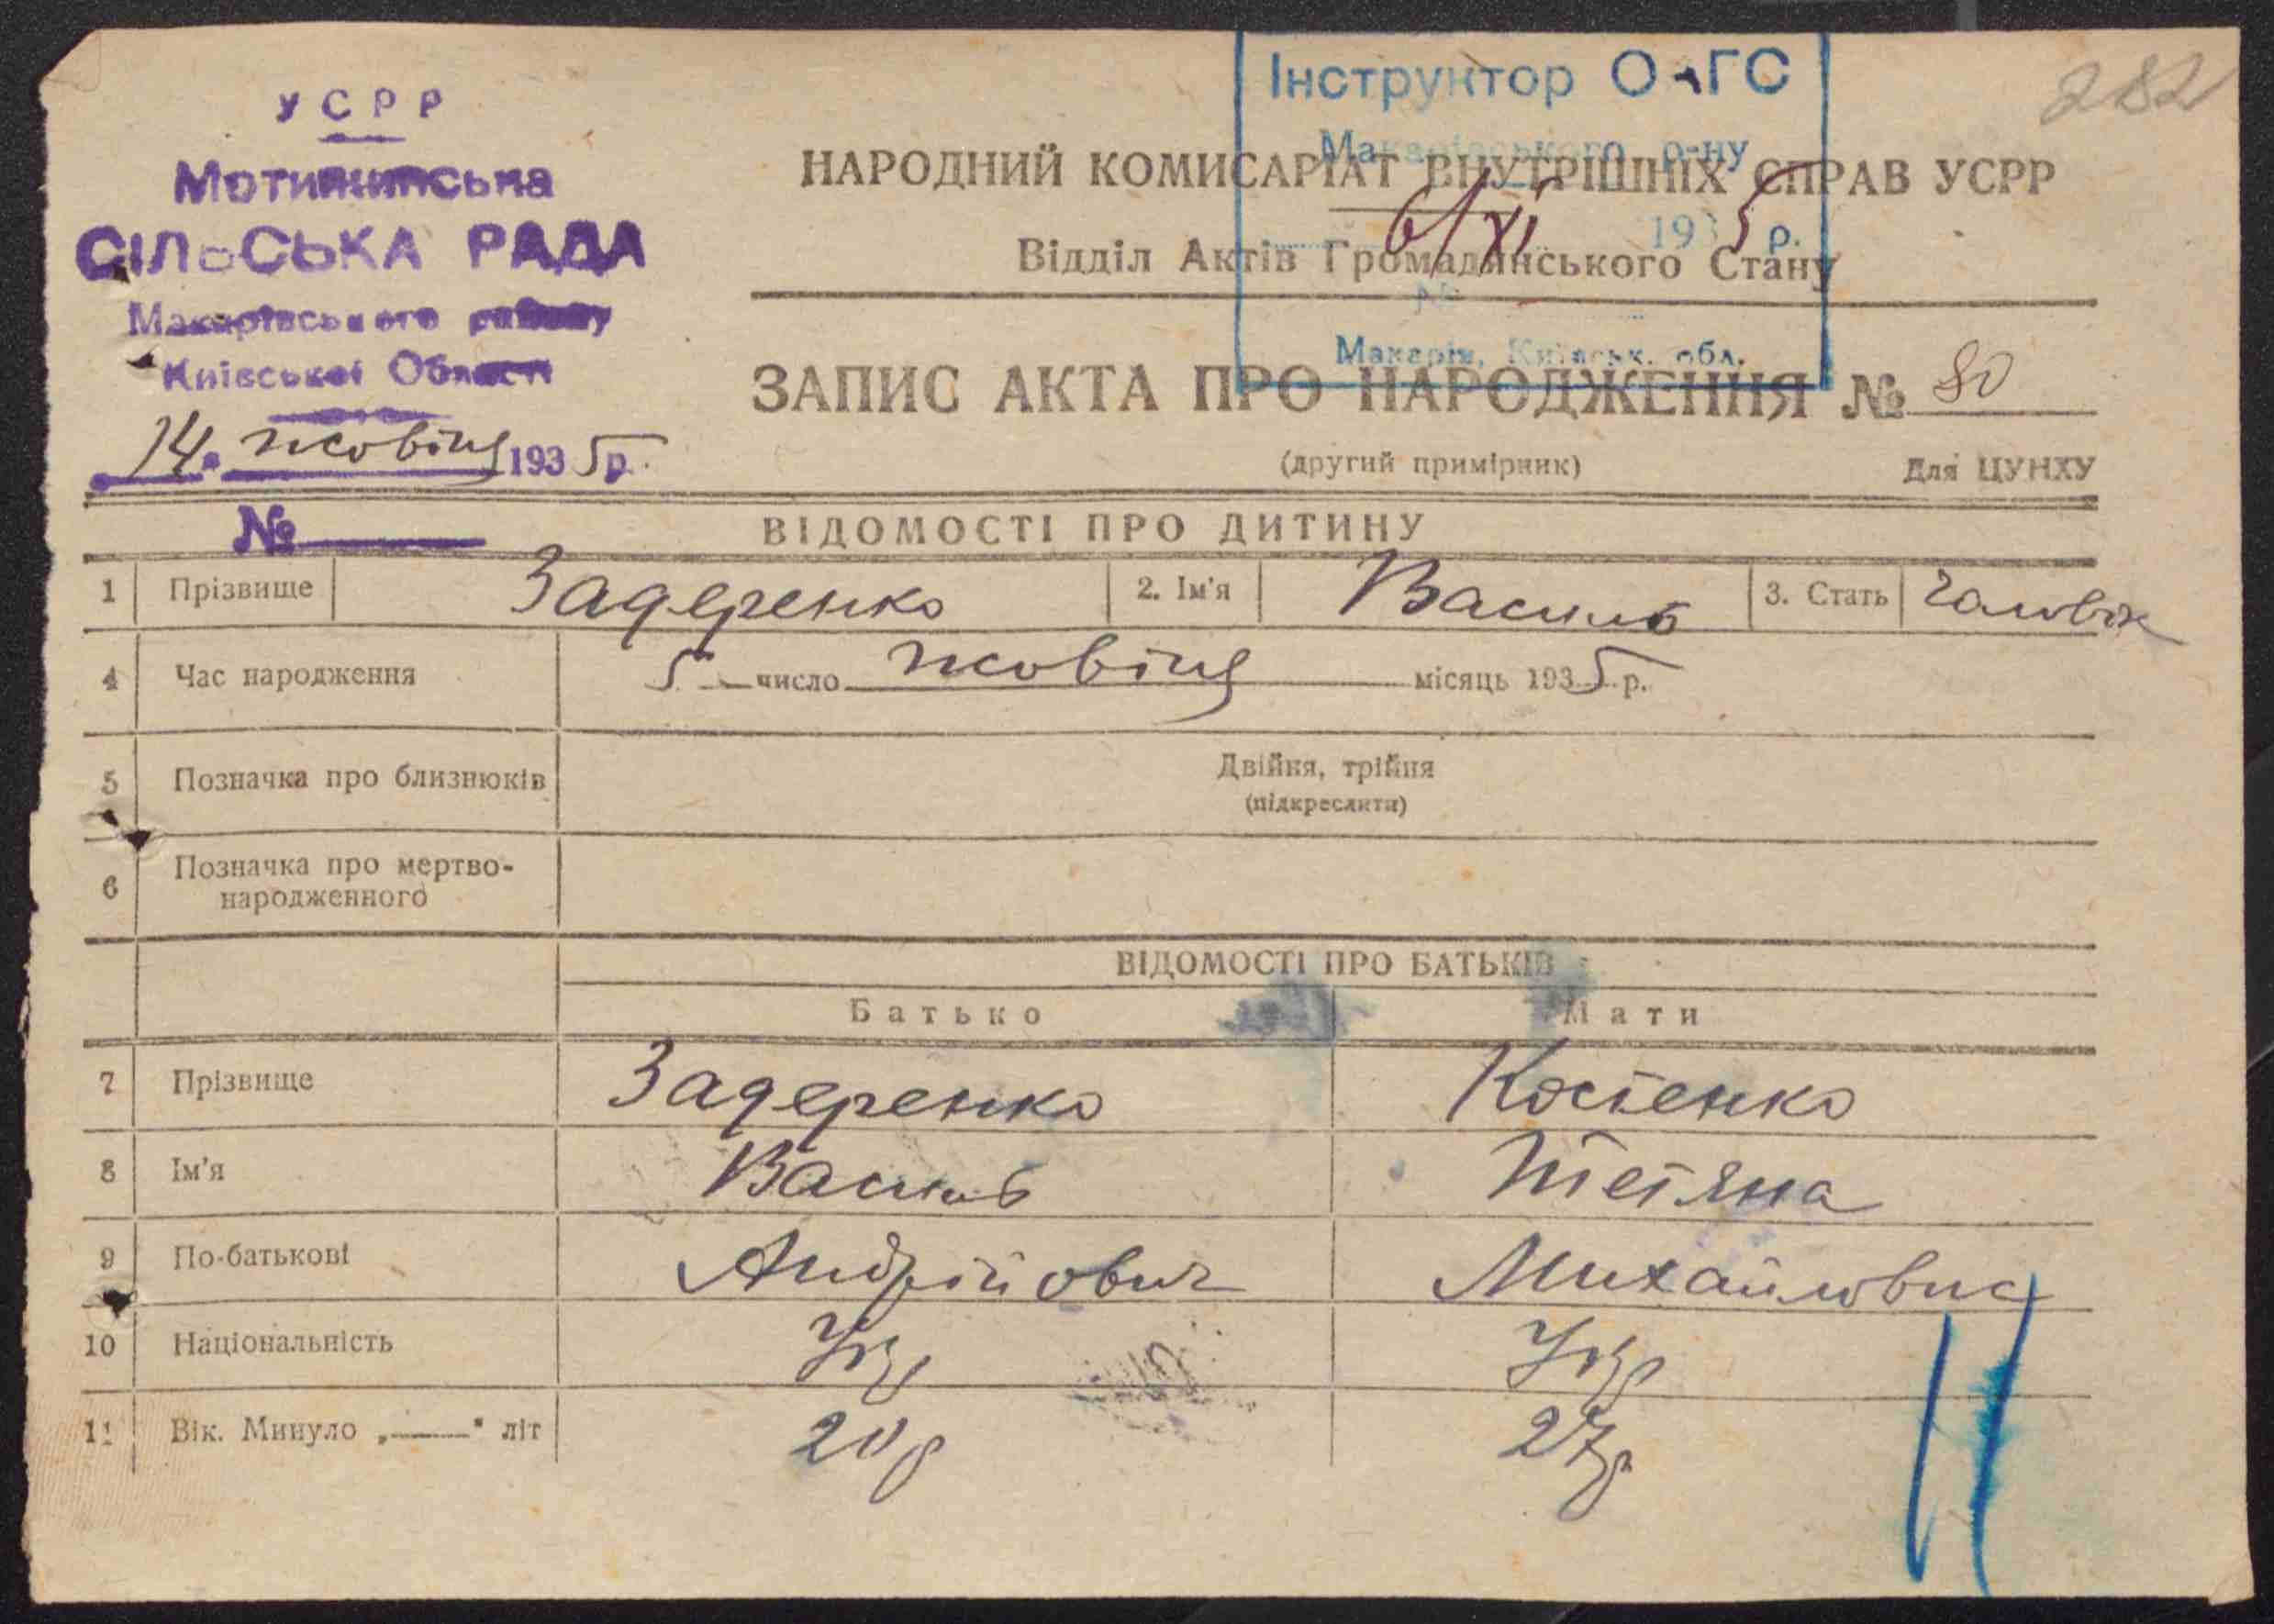 282
УСРР
Мотижинська
СІЛЬСЬКА РАДА
Макарівського району
Київської Області
14. жовтня 1935 р.
№
Інструктор ОАГС
Макарівського р-ну
6/XI 1935 р.
№
Макарів, Київськ. обл.
НАРОДНИЙ КОМИСАРІАТ ВНУТРІШНІХ СПРАВ УСРР
Відділ Актів Громадянського Стану
ЗАПИС АКТА ПРО НАРОДЖЕННЯ № 80
(другий примірник) Для ЦУНХУ
ВІДОМОСТІ ПРО ДИТИНУ
1 Прізвище Задеренко 2. Ім'я Василь 3. Стать Чоловік
4 Час народження 5 число жовтня місяць 1935 р.
5 Позначка про близнюків Двійня, трійня
(підкреслити)
6 Позначка про мертво-
народженного
ВІДОМОСТІ ПРО БАТЬКІВ
Батько Мати
7 Прізвище Задеренко Костенко
8 Ім'я Василь Тетяна
9 По-батькові Андрійович Михайловна
10 Національність Укр Укр
11 Вік. Минуло „——" літ 20 р 27 р